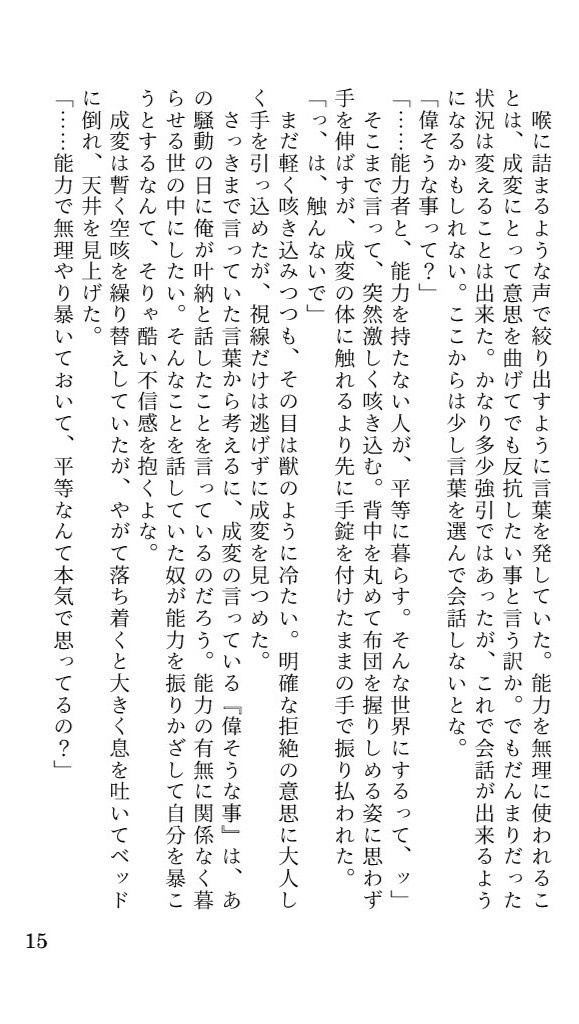 喉に詰まるような声で絞り出すように言葉を発していた。能力を無理に使われるこ
とは、成変にとって意思を曲げてでも反抗したい事と言う訳か。でもだんまりだった
状況は変えることは出来た。かなり多少強引ではあったが、これで会話が出来るよう
になるかもしれない。ここからは少し言葉を選んで会話しないとな。
「偉そうな事って？」
「……能力者と、能力を持たない人が、平等に暮らす。そんな世界にするって、ッ」
　そこまで言って、突然激しく咳き込む。背中を丸めて布団を握りしめる姿に思わず
手を伸ばすが、成変の体に触れるより先に手錠を付けたままの手で振り払われた。
「っ、は、触んないで」
　まだ軽く咳き込みつつも、その目は獣のように冷たい。明確な拒絶の意思に大人し
く手を引っ込めたが、視線だけは逃げずに成変を見つめた。
　さっきまで言っていた言葉から考えるに、成変の言っている『偉そうな事』は、あ
の騒動の日に俺が叶納と話したことを言っているのだろう。能力の有無に関係なく暮
らせる世の中にしたい。そんなことを話していた奴が能力を振りかざして自分を暴こ
うとするなんて、そりゃ酷い不信感を抱くよな。
　成変は暫く空咳を繰り替えしていたが、やがて落ち着くと大きく息を吐いてベッド
に倒れ、天井を見上げた。
「……能力で無理やり暴いておいて、平等なんて本気で思ってるの？」
15